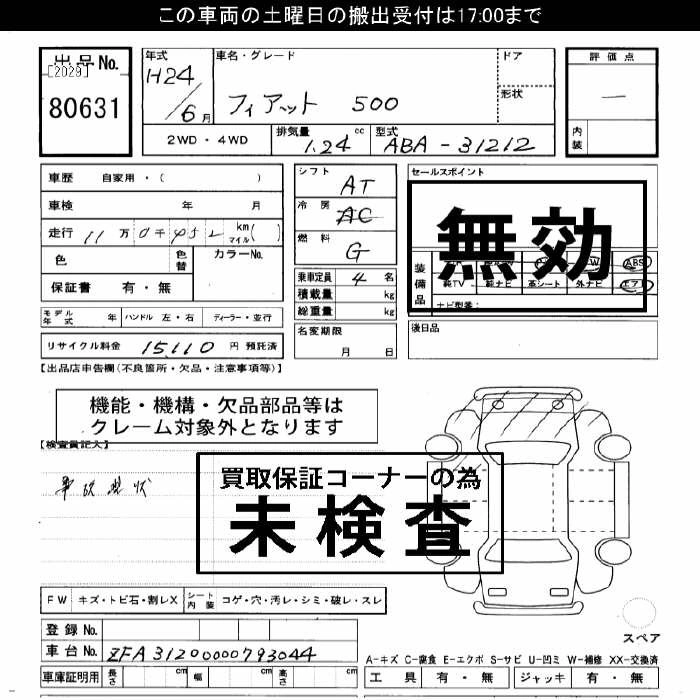 この車両の土曜日の搬出受付は17:00まで
出品No.
[2029]
80631
年式
H24/6月
車名・グレード
フィアット 500
ドア
形状
評価点
—
内装
2WD・4WD
排気量
1.24cc
型式
ABA-31212
車歴 自家用・( )
車検 年 月
走行 11万0千452 km マイル( )
色
色替
カラーNo.
保証書 有・無
シフト
AT
冷房
AC
燃料
G
乗車定員 4名
積載量 kg
総重量 kg
セールスポイント
無効
装備品
ABS
純TV 純ナビ 革シート 外ナビ エア
ナビ型番:
モデル年式 年 ハンドル 左・右 ディーラー・並行
リサイクル料金 15,110 円 預託済
名変期限
月 日
後日品
【出品店申告欄(不良箇所・欠品・注意事項等)】
機能・機構・欠品部品等は
クレーム対象外となります
【検査員記入】
買取保証コーナーの為
未検査
事故現状
FW キズ・トビ石・割レX シート内装 コゲ・穴・汚レ・シミ・破レ・スレ
登録No.
車台No. ZFA31200000793044
車庫証明用 長さ 幅 高さ
スペア
A-キズ C-腐食 E-エクボ S-サビ U-凹ミ W-補修 XX-交換済
工具 有・無 ジャッキ 有・無